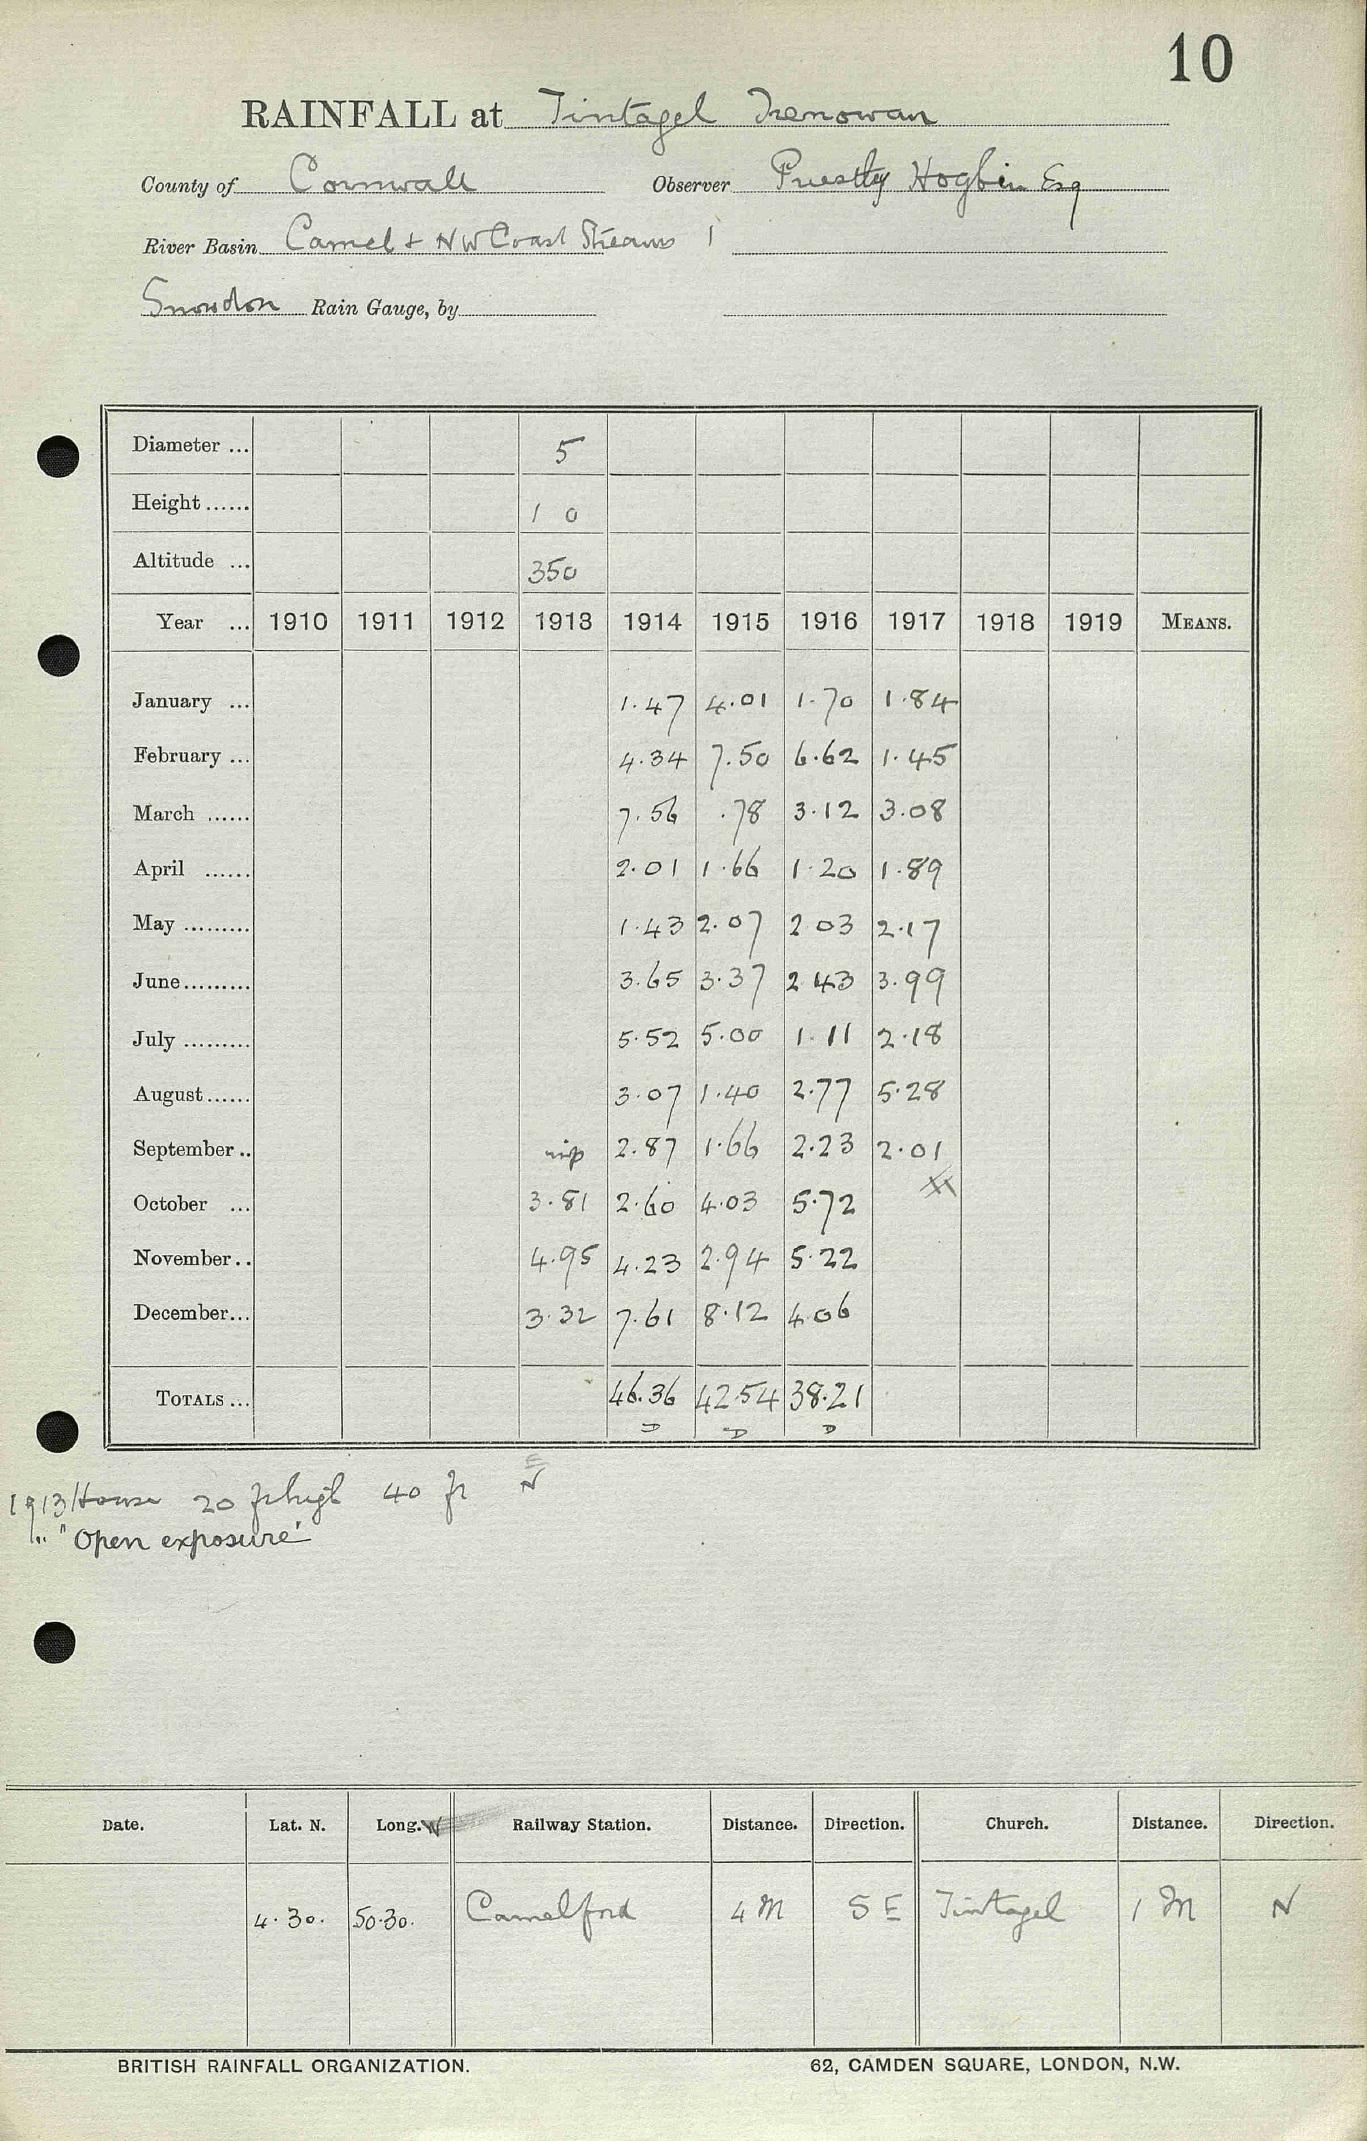 10
RAINFALL at Tintagel Trenowan
County of Cornwall Observer Priestly Hogbin Esq
River Basin Camel & NW Coast Streams 1
Snowdon Rain Gauge, by
Diameter ... 5
Height ...... 1 0
Altitude ... 350
Year ... 1910 1911 1912 1913 1914 1915 1916 1917 1918 1919 MEANS.
January ... 1.47 4.01 1.70 1.84
February ... 4.34 7.50 6.62 1.45
March ...... 7.56 .78 3.12 3.08
April ...... 2.01 1.66 1.20 1.89
May ......... 1.43 2.07 2 03 2.17
June......... 3.65 3.37 2 43 3.99
July ......... 5.52 5.00 1.11 2.18
August...... 3.07 1.40 2.77 5.28
September .. 2.87 1.66 2.23 2.01
October ... 3.81 2.60 4.03 5.72
November.. 4.95 4.23 2.94 5.22
December... 3.32 7.61 8.12 4.06
TOTALS ... 46.36 42.54 38.21
D D D
1913 House 20 ft high 40 ft N
" "Open exposure"
Date. Lat. N. Long. W Railway Station. Distance. Direction. Church. Distance. Direction.
4.30. 50.30. Camelford 4 M S E Tintagel 1 M N
BRITISH RAINFALL ORGANIZATION. 62, CAMDEN SQUARE, LONDON, N.W.